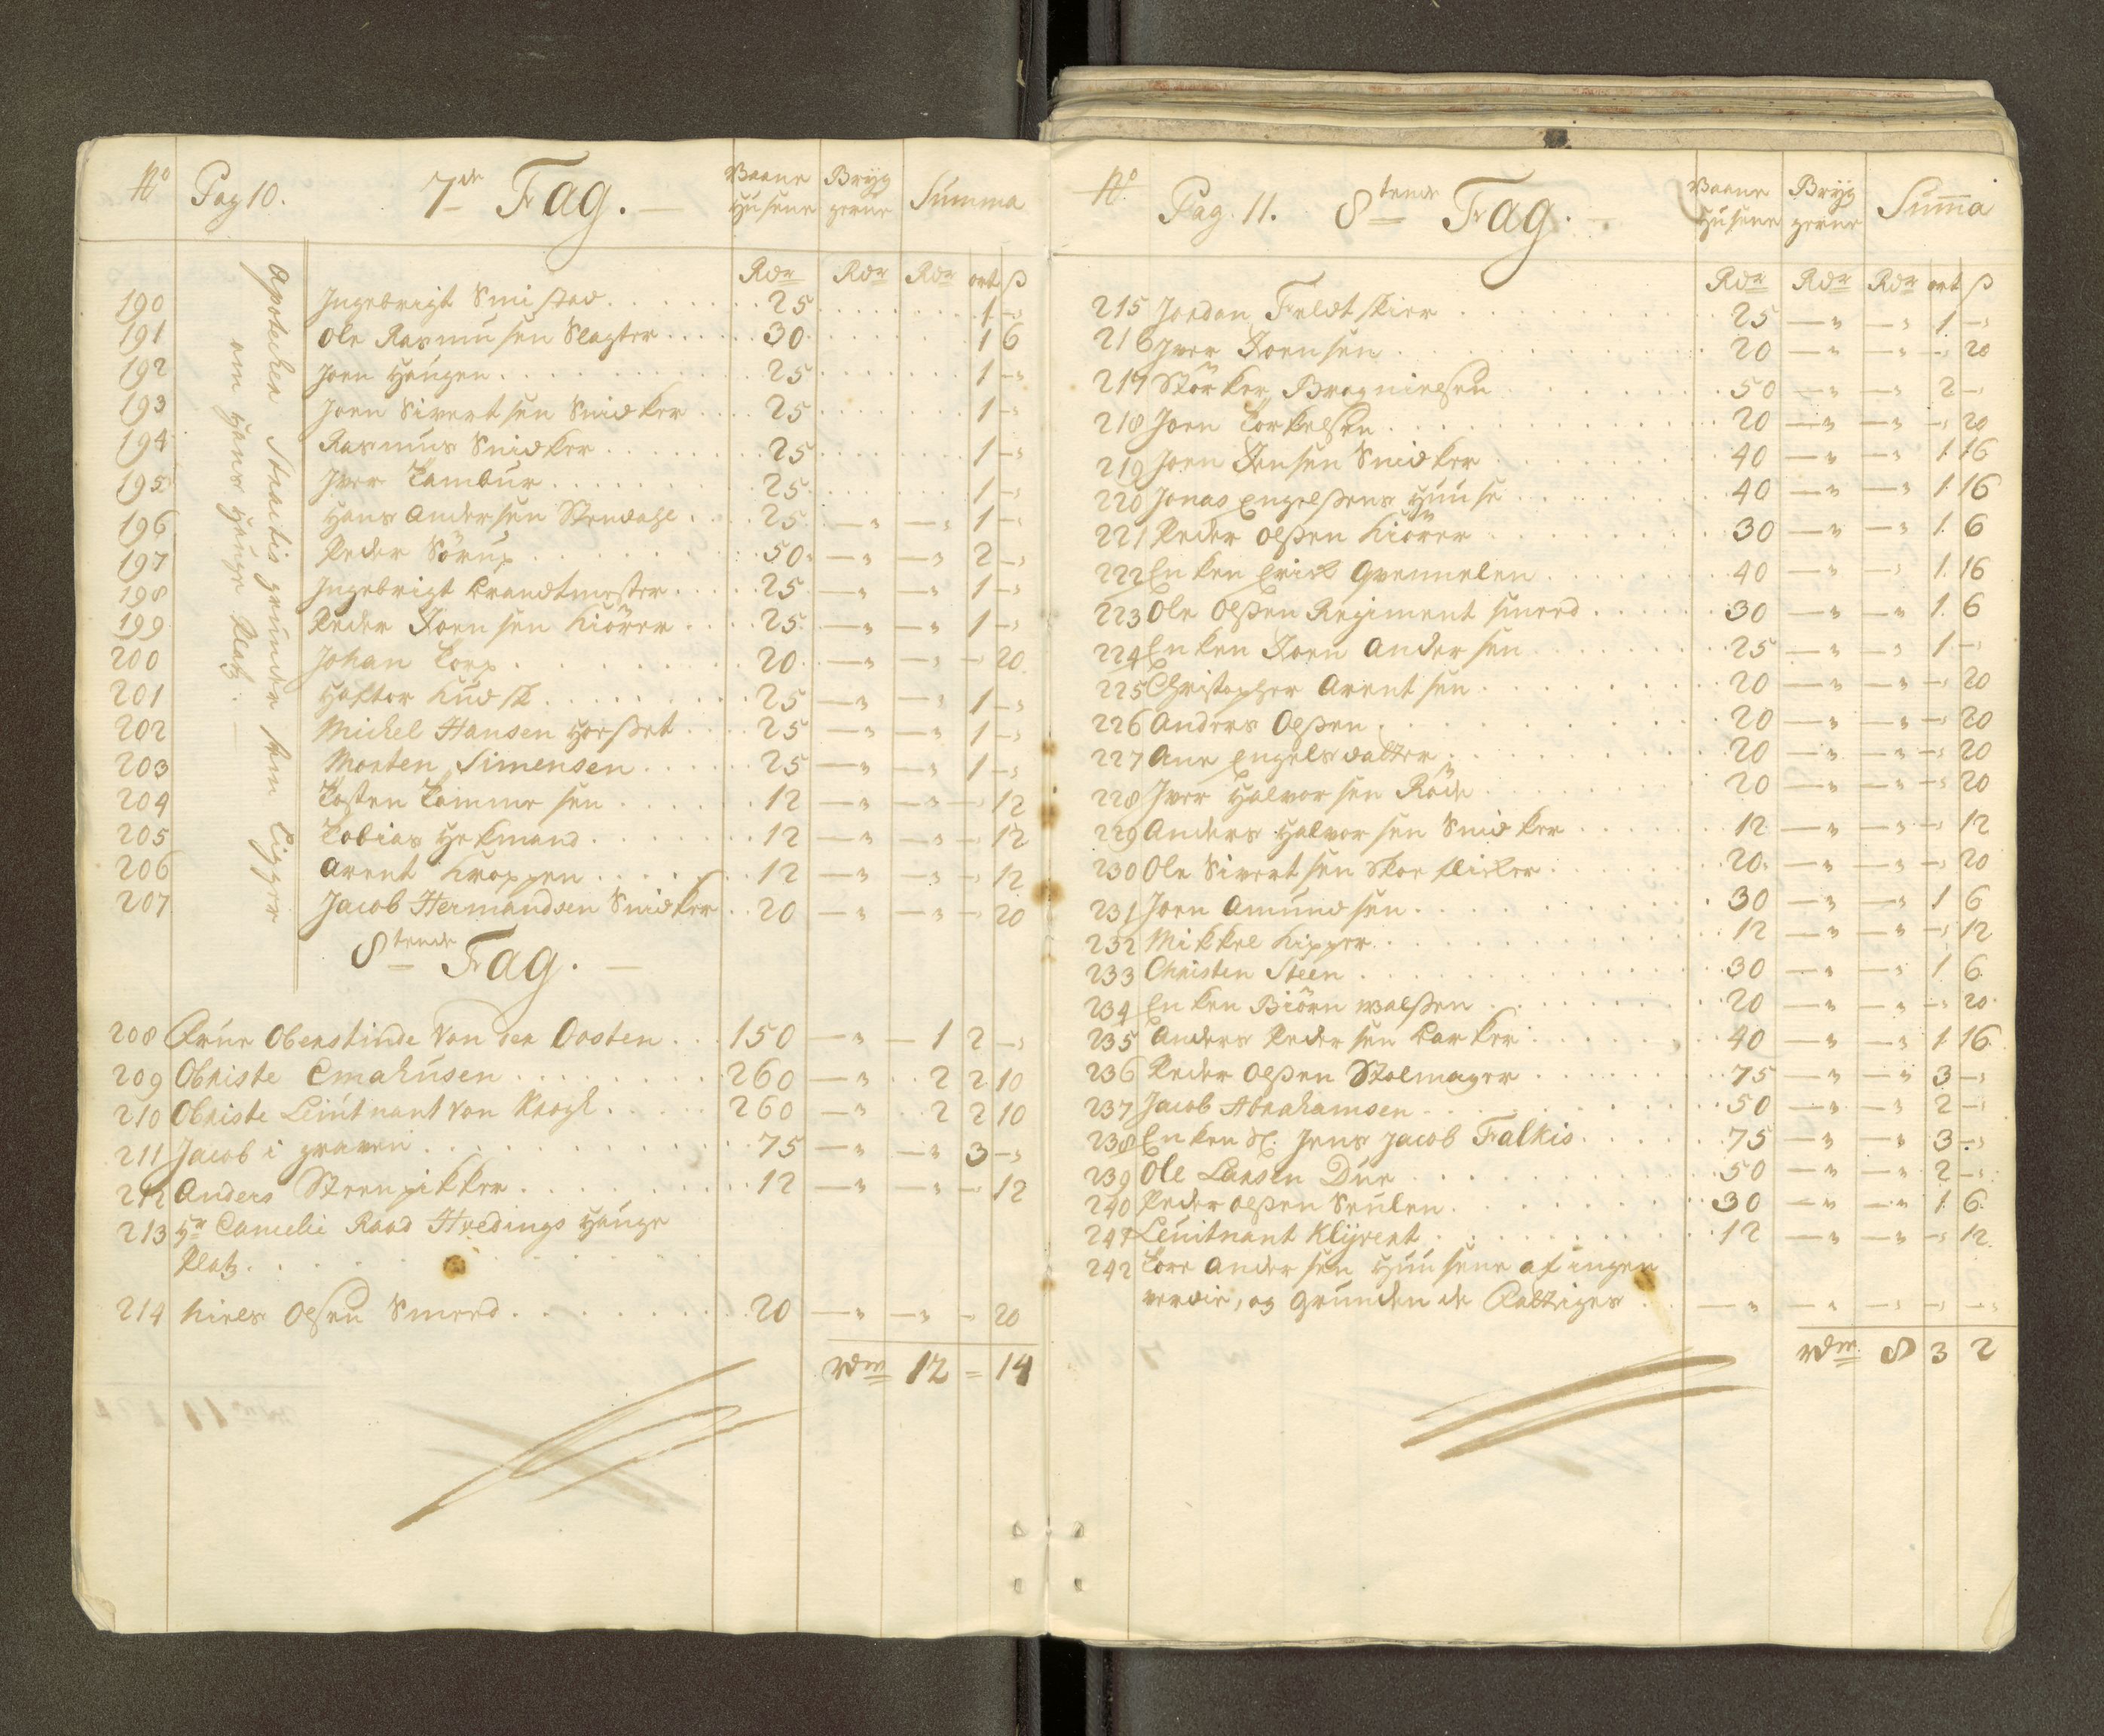 No Pag 10. 7de Fag. Vaane Husene Bryggerne Summa
Rdr Rdr Rdr ort ß
Apotecken Staaits grunde som ligger
om Hans Hauge Platz.
190 Ingebrigt Smistad 25 1 -
191 Ole Rasmusen Slagter 30 1 6
192 Joen Haugen 25 1 -
193 Joen Sivertsen Snidker 25 1 -
194 Rasmus Snidker 25 1 -
195 Iver Tambur 25 1 -
196 Hans Andersen Stendahl 25 - - 1 -
197 Peder Sörup 50 - - 2 -
198 Ingebrigt Brandtmester 25 - - 1 -
199 Peder Joensen Kiörer 25 - - 1 -
200 Johan Torp 20 - - - 20
201 Haftor Kudsk 25 - - 1 -
202 Michel Hansen 25 - - 1 -
203 Morten Simensen 25 - - 1 -
204 Tosten Tommesen 12 - - - 12
205 Tobias Hekmand 12 - - - 12
206 Arent Kroppen 12 - - - 12
207 Jacob Hermandsen Snidker 20 - - - 20
8tende Fag.
208 Frue Oberstinde Von der Oosten 150 - 1 2 -
209 Obriste Emahusen 260 - 2 2 10
210 Obriste Leutnant von Krogh 260 - 2 2 10
211 Jacob i graven 75 - - 3 -
212 Anders Steenpikker 12 - - - 12
213 Hr Cancelie Raad Hvedings Hauge
Platz
214 Niels Olsen Smeed 20 - - - 20
Rdr 12 = 14
No Pag. 11. 8tende Fag. Vaane Husene Bryggerne Summa
Rdr Rdr Rdr ort ß
215 Jordan Feldtskier 25 - - 1 -
216 Iver Joensen 20 - - - 20
217 Störker Brognielsen 50 - - 2 -
218 Joen Torkelsen 20 - - - 20
219 Joen Jensen Snidker 40 - - 1 16
220 Jonas Engelsens Huuse 40 - - 1 16
221 Peder Olsen Kiörer 30 - - 1 6
222 Enken Erich Qvennelen 40 - - 1 16
223 Ole Olsen Regiment smeed 30 - - 1 6
224 Enken Joen Andersen 25 - - 1 -
225 Christopher Arentsen 20 - - - 20
226 Anders Olsen 20 - - - 20
227 Ane Engelsdatter 20 - - - 20
228 Iver Halvorsen Röde 20 - - - 20
229 Anders Halvorsen Snidker 12 - - - 12
230 Ole Sivertsen Skoeflicker 20 - - - 20
231 Joen Amundsen 30 - - 1 6
232 Mikkel Kipper 12 - - - 12
233 Christen Steen 30 - - 1 6
234 Enken Biörn 20 - - - 20
235 Anders Pedersen Barker 40 - - 1 16
236 Peder Olsen Stolmager 75 - - 3 -
237 Jacob Abrahamsen 50 - - 2 -
238 Enken Sl. Jens Jacob Falkis 75 - - 3 -
239 Ole Larsen Due 50 - - 2 -
240 Peder Olsen Seulen 30 - - 1 6
241 Leuitnant Klÿvert 12 - - - 12
242 Tore Andersen Huusene af ingen
verdie, og Grunden de Fattiges - - - - -
Rdr 8 3 2